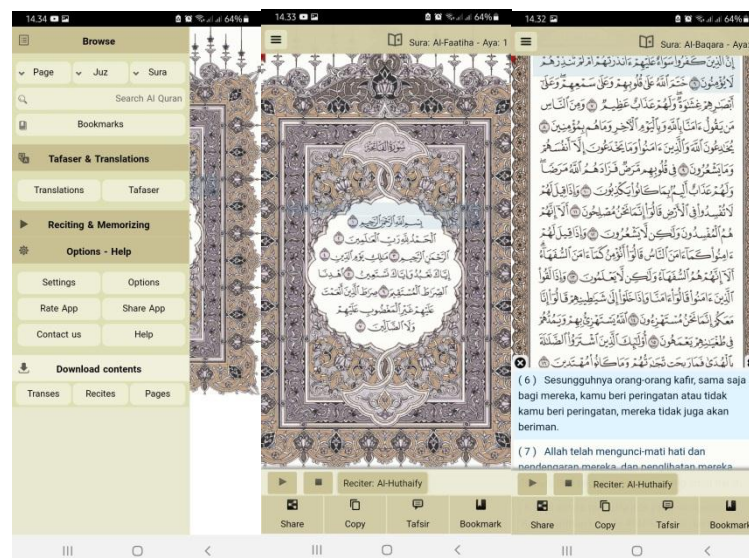 14.34 64%
Browse
Page Juz Sura
Search Al Quran
Bookmarks
Tafaser & Translations
Translations Tafaser
Reciting & Memorizing
Options - Help
Settings Options
Rate App Share App
Contact us Help
Download contents
Transes Recites Pages
14.33 64%
Sura: Al-Faatiha - Aya: 1
سُورَةُ الفَاتِحَةِ
بِسْمِ اللَّهِ الرَّحْمَٰنِ الرَّحِيمِ ١
الْحَمْدُ لِلَّهِ رَبِّ الْعَالَمِينَ ٢
الرَّحْمَٰنِ الرَّحِيمِ ٣ مَالِكِ يَوْمِ الدِّينِ ٤
إِيَّاكَ نَعْبُدُ وَإِيَّاكَ نَسْتَعِينُ ٥ اهْدِنَا
الصِّرَاطَ الْمُسْتَقِيمَ ٦ صِرَاطَ الَّذِينَ أَنْعَمْتَ
عَلَيْهِمْ غَيْرِ الْمَغْضُوبِ عَلَيْهِمْ
وَلَا الضَّالِّينَ ٧
Reciter: Al-Huthaify
Share Copy Tafsir Bookmark
14.32 64%
Sura: Al-Baqara - Aya:
إِنَّ الَّذِينَ كَفَرُوا سَوَاءٌ عَلَيْهِمْ ءَأَنذَرْتَهُمْ أَمْ لَمْ تُنذِرْهُمْ
لَا يُؤْمِنُونَ ٦ خَتَمَ اللَّهُ عَلَىٰ قُلُوبِهِمْ وَعَلَىٰ سَمْعِهِمْ وَعَلَىٰ
أَبْصَارِهِمْ غِشَاوَةٌ وَلَهُمْ عَذَابٌ عَظِيمٌ ٧ وَمِنَ النَّاسِ
مَن يَقُولُ ءَامَنَّا بِاللَّهِ وَبِالْيَوْمِ الْآخِرِ وَمَا هُم بِمُؤْمِنِينَ ٨
يُخَادِعُونَ اللَّهَ وَالَّذِينَ ءَامَنُوا وَمَا يَخْدَعُونَ إِلَّا أَنفُسَهُمْ
وَمَا يَشْعُرُونَ ٩ فِي قُلُوبِهِم مَّرَضٌ فَزَادَهُمُ اللَّهُ مَرَضًا
وَلَهُمْ عَذَابٌ أَلِيمٌ بِمَا كَانُوا يَكْذِبُونَ ١٠ وَإِذَا قِيلَ لَهُمْ
لَا تُفْسِدُوا فِي الْأَرْضِ قَالُوا إِنَّمَا نَحْنُ مُصْلِحُونَ ١١ أَلَا إِنَّهُمْ
هُمُ الْمُفْسِدُونَ وَلَٰكِن لَّا يَشْعُرُونَ ١٢ وَإِذَا قِيلَ لَهُمْ
ءَامِنُوا كَمَا ءَامَنَ النَّاسُ قَالُوا أَنُؤْمِنُ كَمَا ءَامَنَ السُّفَهَاءُ
أَلَا إِنَّهُمْ هُمُ السُّفَهَاءُ وَلَٰكِن لَّا يَعْلَمُونَ ١٣ وَإِذَا لَقُوا
الَّذِينَ ءَامَنُوا قَالُوا ءَامَنَّا وَإِذَا خَلَوْا إِلَىٰ شَيَاطِينِهِمْ قَالُوا إِنَّا
مَعَكُمْ إِنَّمَا نَحْنُ مُسْتَهْزِءُونَ ١٤ اللَّهُ يَسْتَهْزِئُ بِهِمْ وَيَمُدُّهُمْ
فِي طُغْيَانِهِمْ يَعْمَهُونَ ١٥ أُولَٰئِكَ الَّذِينَ اشْتَرَوُا الضَّلَالَةَ
بِالْهُدَىٰ فَمَا رَبِحَت تِّجَارَتُهُمْ وَمَا كَانُوا مُهْتَدِينَ ١٦
( 6 ) Sesungguhnya orang-orang kafir, sama saja
bagi mereka, kamu beri peringatan atau tidak
kamu beri peringatan, mereka tidak juga akan
beriman.
( 7 ) Allah telah mengunci-mati hati dan
pendengaran mereka, dan penglihatan mereka
Reciter: Al-Huthaify
Share Copy Tafsir Bookmark